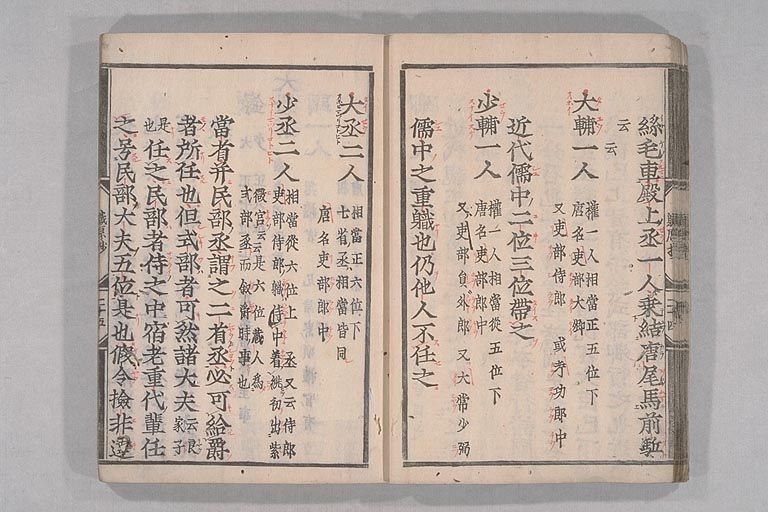 絲毛車殿上丞一人乗結唐尾馬前駈
云云
大輔一人 權一人相當正五位下
唐名吏部大卿
又吏部侍郎 或考功郎中
近代儒中二位三位帶之
少輔一人 權一人相當從五位下
唐名吏部郎中
又吏部員外郎 又大常少弼
儒中之重職也仍他人不任之
大丞二人 相當正六位下
七省丞相當皆同
唐名吏部郎中
少丞二人 相當從六位上 丞又云侍郎
吏部侍郎職侍中着 初出紫
微宮云云是六位蔵人為
式部丞而叙爵時事也
當省并民部丞謂之二省丞必可給爵
者所任也但式部者可然諸大夫 云良家子
是也 任之民部者侍之中宿老重代輩任
之号民部大夫五位是也假令撿非違
職原抄 二十五